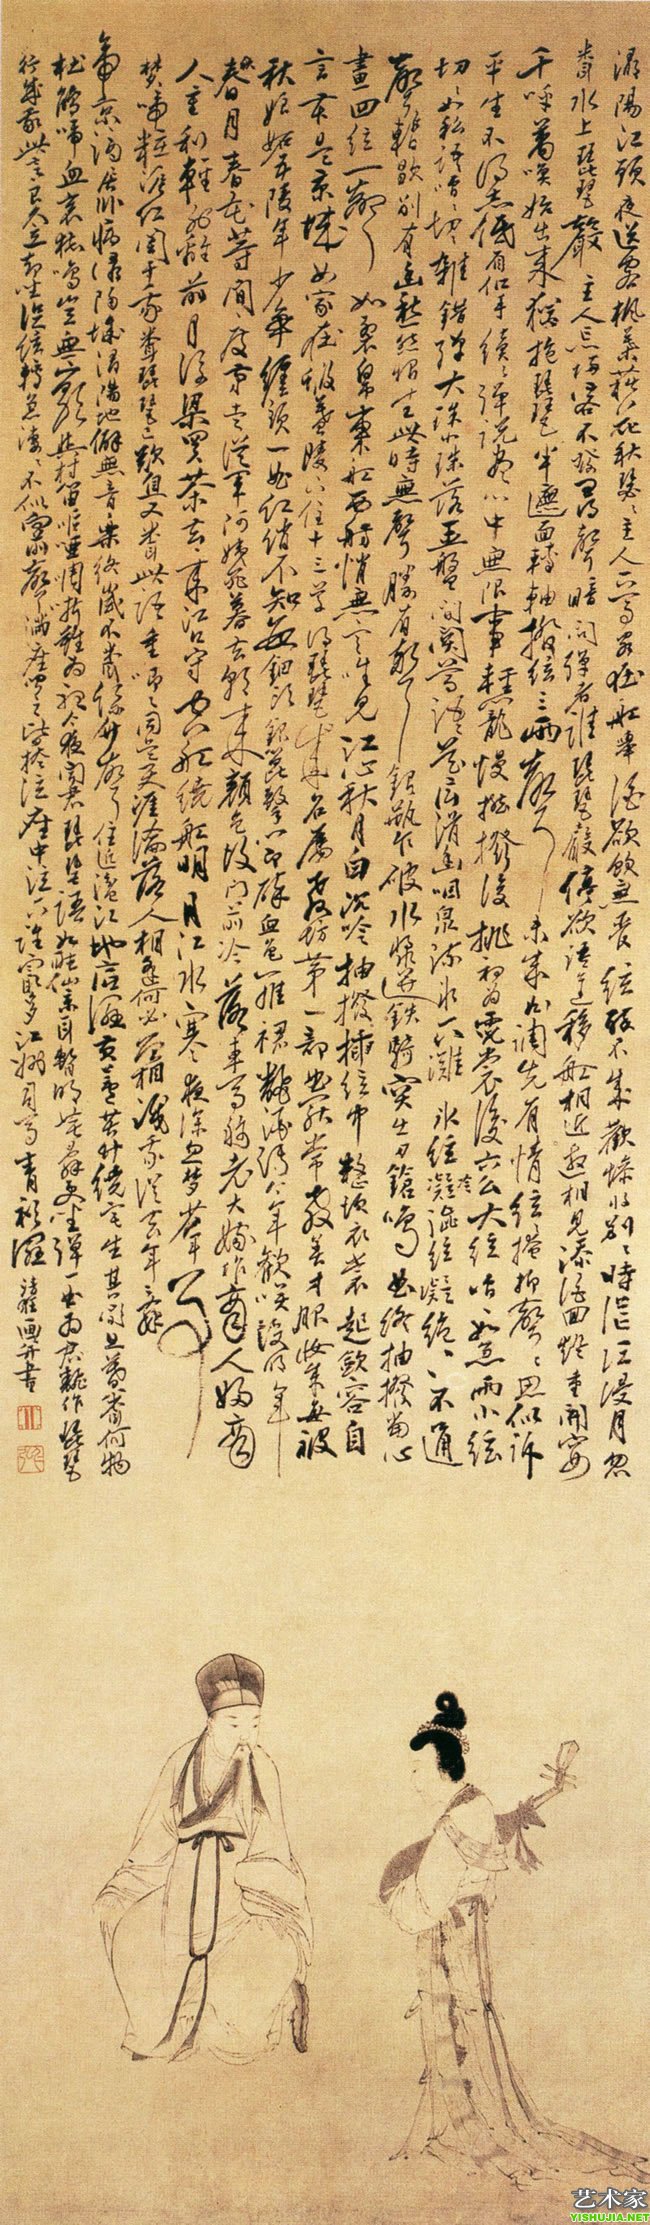 潯陽江頭夜送客楓葉荻花秋瑟瑟主人下馬客在船舉酒欲飲無管絃醉不成歡慘將別別時茫茫江浸月忽
聞水上琵琶聲主人忘歸客不發尋聲暗問彈者誰琵琶聲停欲語遲移船相近邀相見添酒回燈重開宴
千呼萬喚始出來猶抱琵琶半遮面轉軸撥絃三兩聲未成曲調先有情絃絃掩抑聲聲思似訴
平生不得志低眉信手續續彈說盡心中無限事輕攏慢撚撥復挑初為霓裳後六么大絃嘈嘈如急雨小絃
切切如私語嘈嘈切切雜錯彈大珠小珠落玉盤間關鶯語花底滑幽咽泉流水下灘冰絃冷澀絃凝絕凝絕不通
聲暫歇別有幽愁暗恨生此時無聲勝有聲銀瓶乍破水漿迸鐵騎突出刀鎗鳴曲終抽撥當心
畫四絃一聲如裂帛東船西舫悄無言唯見江心秋月白沉吟抽撥插絃中整頓衣裳起斂容自
言本是京城女家在蝦蟇陵下住十三學得琵琶成名屬教坊第一部曲罷常教善才服妝成每被
秋娘妬五陵年少爭纏頭一曲紅綃不知數鈿頭銀篦擊節碎血色羅裙翻酒汚今年歡笑復明年
春月春花等閒度弟走從軍阿姨死暮去朝來顏色故門前冷落車馬稀老大嫁作商人婦商
人重利輕別離前月浮梁買茶去去來江口守空船繞船明月江水寒夜深忽夢少年事
夢啼粧淚紅闌干我聞琵琶已歎息又聞此語重唧唧同是天涯淪落人相逢何必曾相識我從去年辭
帝京謫居臥病潯陽城潯陽地僻無音樂終歲不聞絲竹聲住近湓江地低濕黃蘆苦竹繞宅生其間旦暮聞何物
杜鵑啼血哀猿鳴豈無山歌與村笛嘔啞啁哳難為聽今夜聞君琵琶語如聽仙樂耳暫明莫辭更坐彈一曲為君翻作琵琶
行感我此言良久立却坐促絃絃轉急淒淒不似向前聲滿座聞之皆掩泣座中泣下誰最多江州司馬青衫濕 清狂畫并書
艺术家
YISHUJIA.NET